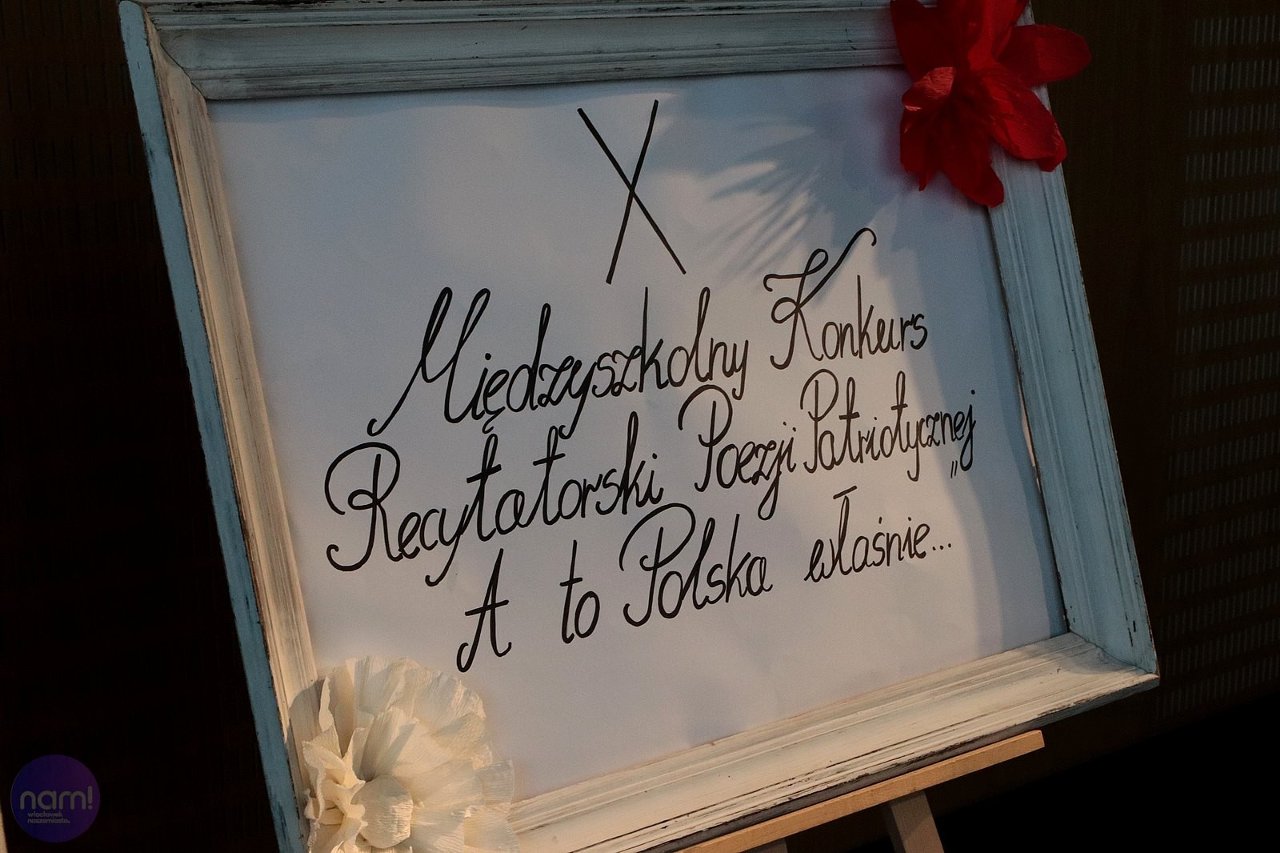 X
Międzyszkolny Konkurs
Recytatorski Poezji Patriotycznej
A to Polska właśnie..."
nam!
włocławek
naszemiasto.